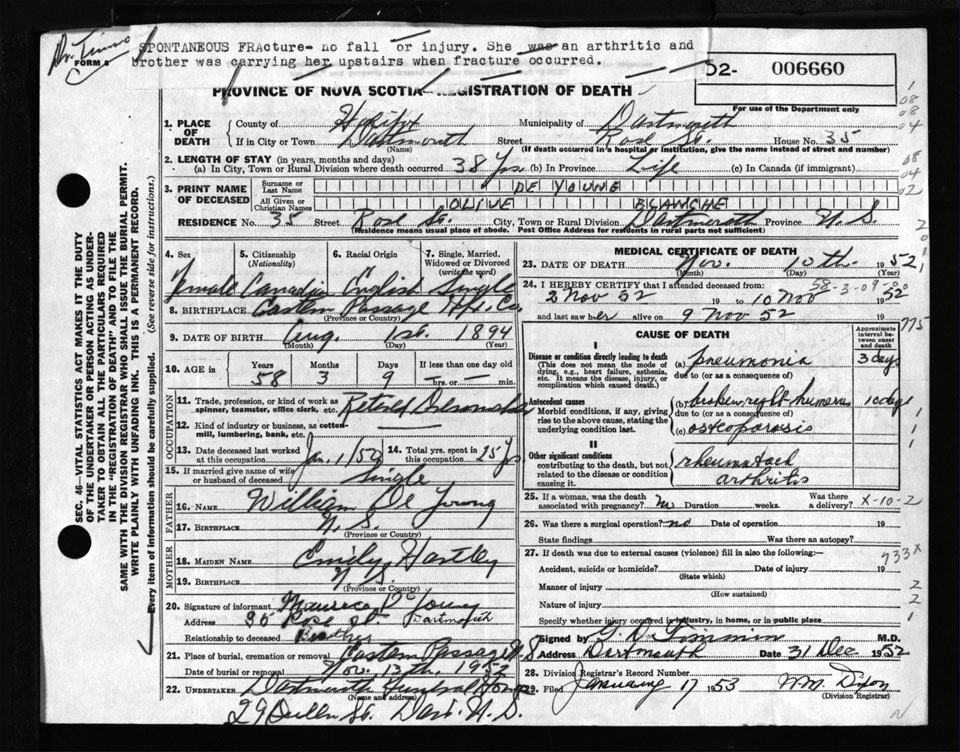 Dr. Timmins
FORM 6
SPONTANEOUS FRActure- no fall or injury. She was an arthritic and
brother was carrying her upstairs when fracture occurred.
52- 006660
For use of the Department only
PROVINCE OF NOVA SCOTIA—REGISTRATION OF DEATH
1. PLACE OF DEATH
County of Halifax Municipality of Dartmouth
If in City or Town Dartmouth Street Rose St. House No. 35
(Name) (If death occurred in a hospital or institution, give the name instead of street and number)
2. LENGTH OF STAY (in years, months and days)
(a) In City, Town or Rural Division where death occurred 38 yrs (b) In Province Life (c) In Canada (if immigrant)
3. PRINT NAME OF DECEASED
Surname or Last Name DE YOUNG
All Given or Christian Names OLIVE BLANCHE
RESIDENCE No. 35 Street Rose St. City, Town or Rural Division Dartmouth Province N.S.
(Residence means usual place of abode. Post Office Address for residents in rural parts not sufficient)
4. Sex 5. Citizenship (Nationality) 6. Racial Origin 7. Single, Married, Widowed or Divorced (write the word)
Female Canadian English Single
8. BIRTHPLACE Eastern Passage Hfx. Co.
(Province or Country)
9. DATE OF BIRTH Aug. 1st. 1894
(Month) (Day) (Year)
10. AGE in Years Months Days If less than one day
58 3 9 hrs. or min.
OCCUPATION
11. Trade, profession, or kind of work as spinner, teamster, office clerk, etc. Retired
12. Kind of industry or business, as cotton-mill, lumbering, bank, etc.
13. Date deceased last worked at this occupation Jan. 1/52 14. Total yrs. spent in this occupation 25 yrs
15. If married give name of wife or husband of deceased Single
FATHER
16. NAME William De Young
17. BIRTHPLACE N.S.
(Province or Country)
MOTHER
18. MAIDEN NAME Emily Hartley
19. BIRTHPLACE N.S.
(Province or Country)
20. Signature of informant Maurice De Young
Address 35 Rose St Dartmouth
Relationship to deceased Brother
21. Place of burial, cremation or removal Eastern Passage N.S
Date of burial or removal Nov. 13th, 1952
22. UNDERTAKER Dartmouth Funeral Home
(Name and address)
29 Queen St. Dart. N.S.
MEDICAL CERTIFICATE OF DEATH
23. DATE OF DEATH Nov. 10th 1952
(Month) (Day) (Year)
24. I HEREBY CERTIFY that I attended deceased from:
58-3-09
2 Nov 52 19 to 10 Nov 1952
and last saw her alive on 9 Nov 52 19
775
CAUSE OF DEATH
Approximate interval between onset and death
I
Disease or condition directly leading to death
(This does not mean the mode of dying, e.g., heart failure, asthenia, etc. It means the disease, injury, or complication which caused death.)
(a) pneumonia 3 days
due to (or as a consequence of)
Antecedent causes
Morbid conditions, if any, giving rise to the above cause, stating the underlying condition last.
(b) broken right humerus 10 days
due to (or as a consequence of)
(c) osteoporosis
II
Other significant conditions
contributing to the death, but not related to the disease or condition causing it.
rheumatoid
arthritis
25. If a woman, was the death associated with pregnancy? no Duration weeks. Was there a delivery? X-10-2
26. Was there a surgical operation? no Date of operation 19
State findings Was there an autopsy?
27. If death was due to external causes (violence) fill in also the following:— 933x
Accident, suicide or homicide? Date of injury 19
(State which)
Manner of injury
(How sustained)
Nature of injury
Specify whether injury occurred in industry, in home, or in public place
Signed by G. D. Timmin M.D.
Address Dartmouth Date 31 Dec 1952
28. Division Registrar's Record Number
29. Filed January 17 1953 W.M. Dyon
(Division Registrar)
SEC. 46—VITAL STATISTICS ACT MAKES IT THE DUTY
OF THE UNDERTAKER OR PERSON ACTING AS UNDER-
TAKER TO OBTAIN ALL THE PARTICULARS REQUIRED
IN THE "REGISTRATION OF DEATH" AND TO FILE THE
SAME WITH THE DIVISION REGISTRAR WHO SHALL ISSUE THE BURIAL PERMIT.
WRITE PLAINLY WITH UNFADING INK. THIS IS A PERMANENT RECORD.
Every item of information should be carefully supplied. (See reverse side for instructions.)